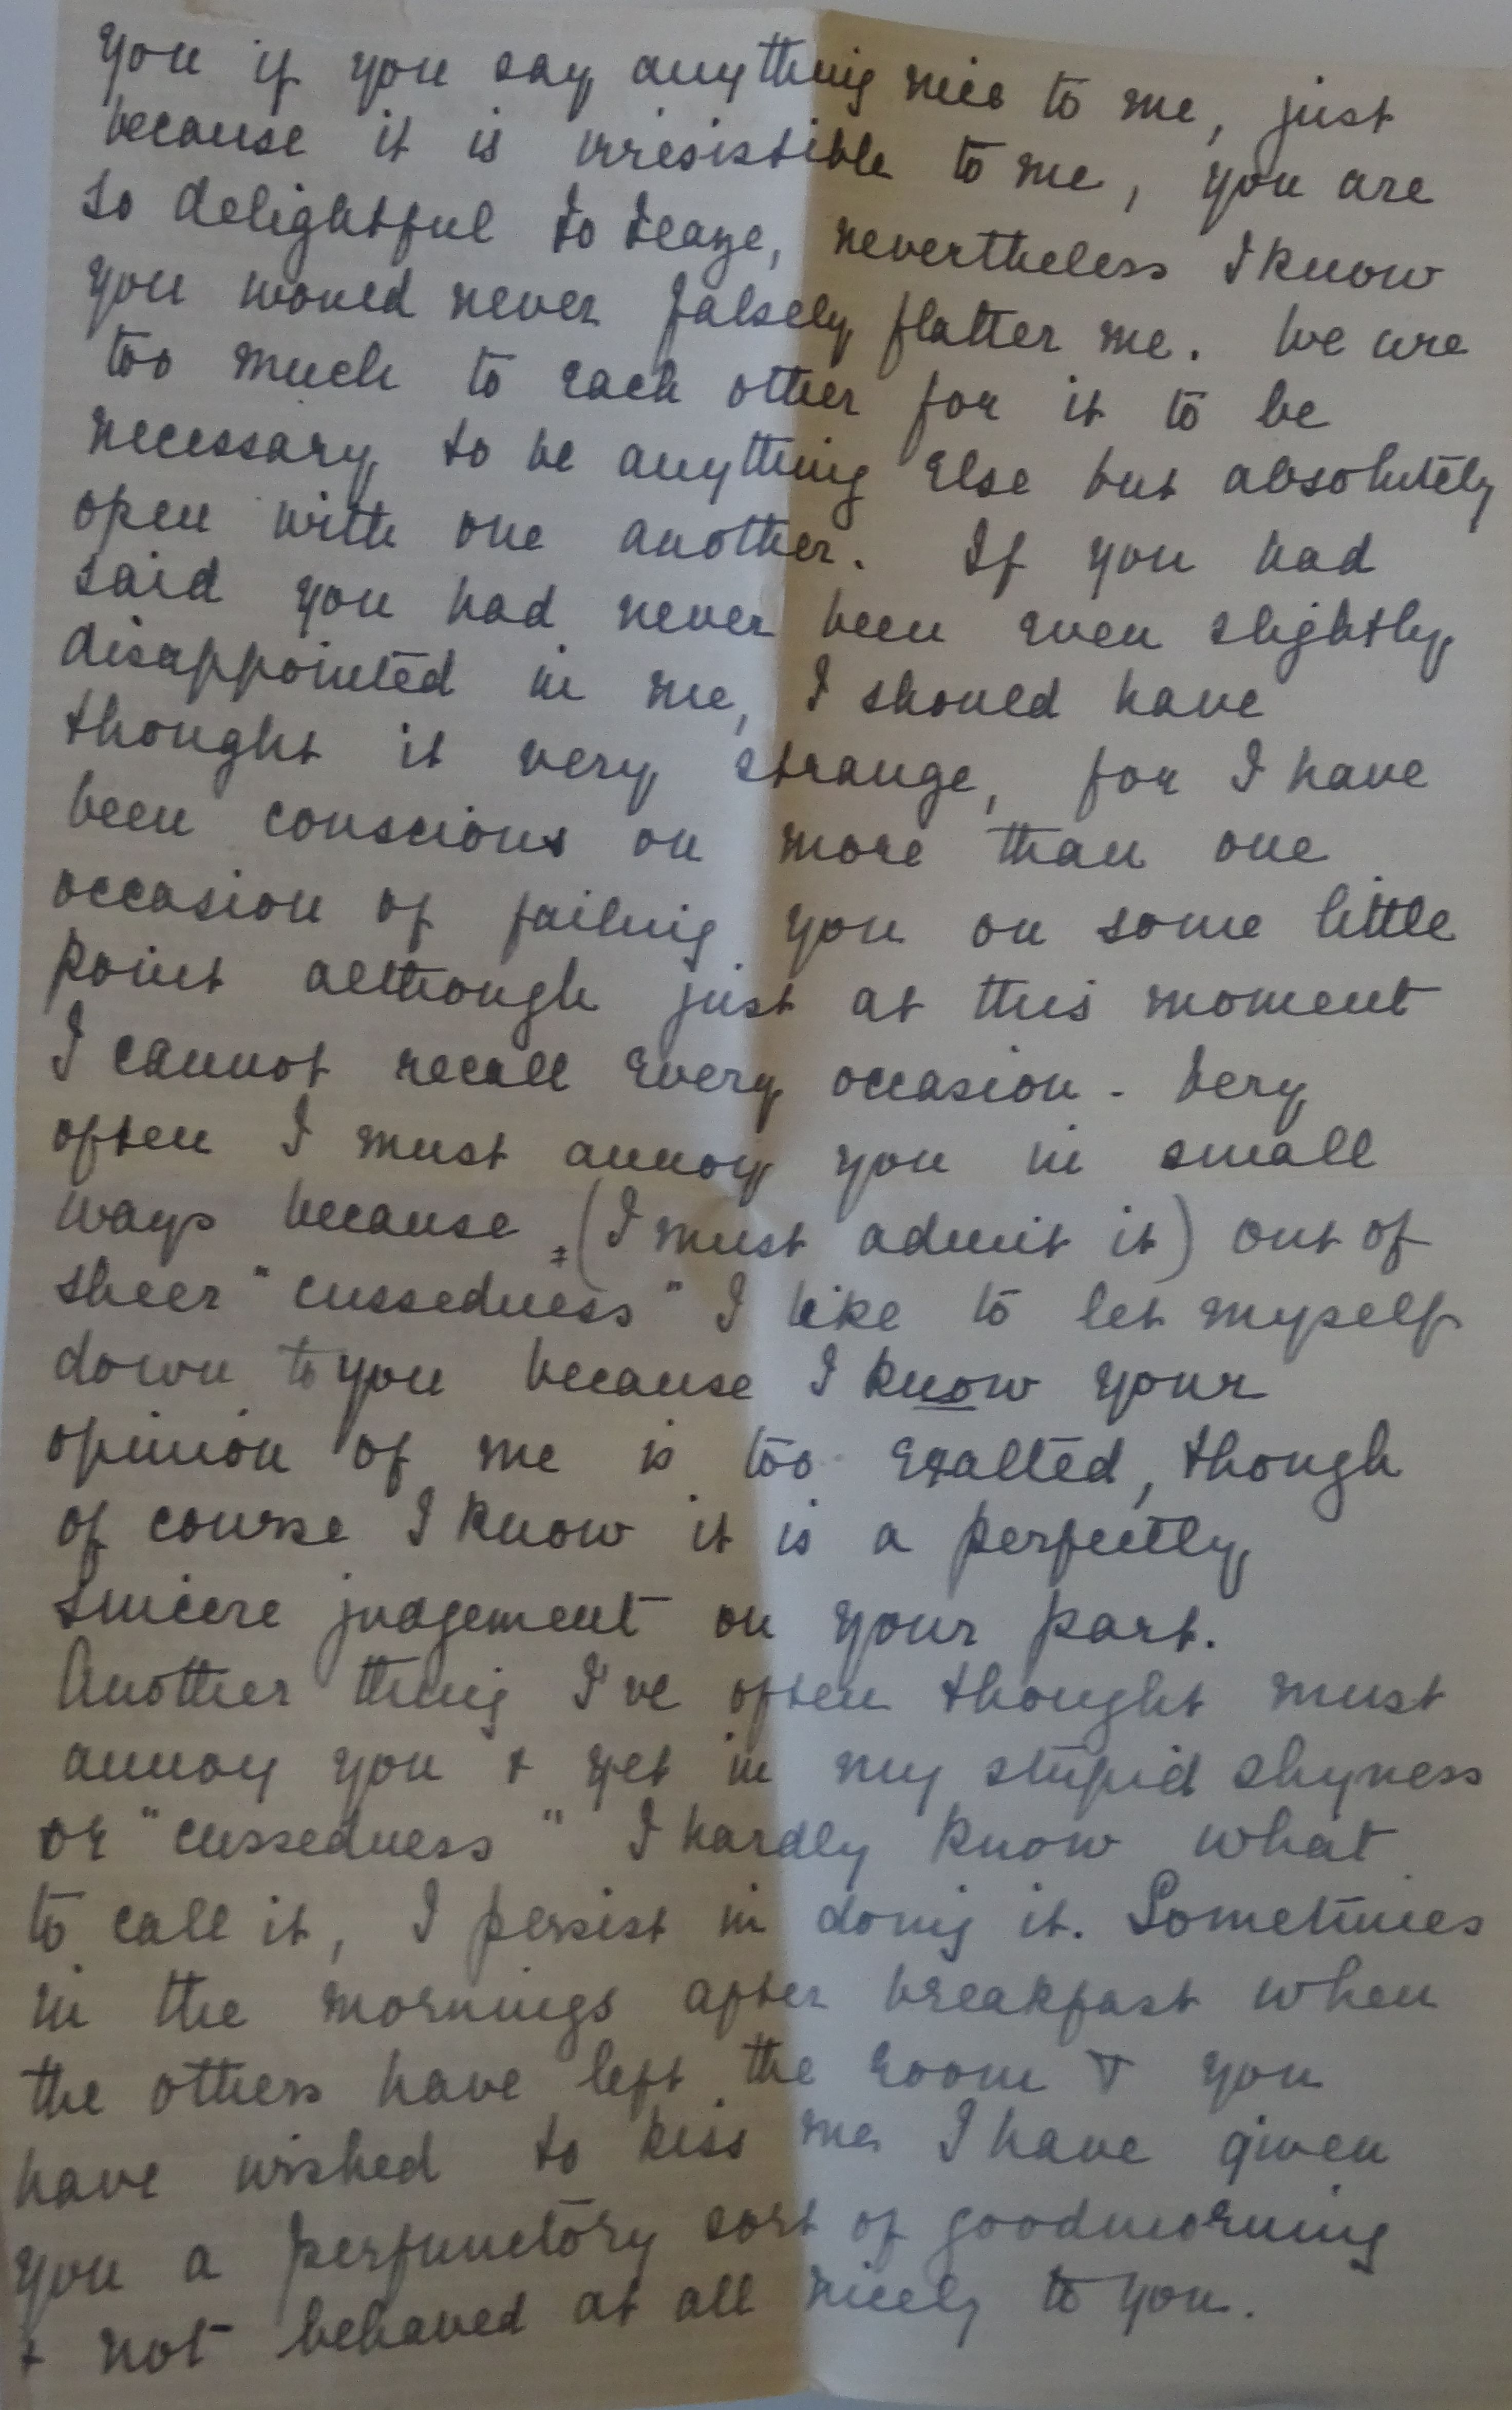 you if you say anything nice to me, just
because it is irresistible to me, you are
so delightful to teaze, nevertheless I know
you would never falsely flatter me. We are
too much to each other for it to be
necessary to be anything else but absolutely
open with one another. If you had
said you had never been even slightly
disappointed in me, I should have
thought it very strange, for I have
been conscious on more than one
occasion of failing you on some little
point although just at this moment
I cannot recall every occasion. Very
often I must annoy you in small
ways because, (I must admit it) out of
sheer "cussedness" I like to let myself
down to you because I know your
opinion of me is too exalted, though
of course I know it is a perfectly
sincere judgement on your part.
Another thing I've often thought must
annoy you & yet in my stupid shyness
or "cussedness" I hardly know what
to call it, I persist in doing it. Sometimes
in the mornings after breakfast when
the others have left the room & you
have wished to kiss me I have given
you a perfunctory sort of goodmorning
& not behaved at all nicely to you.